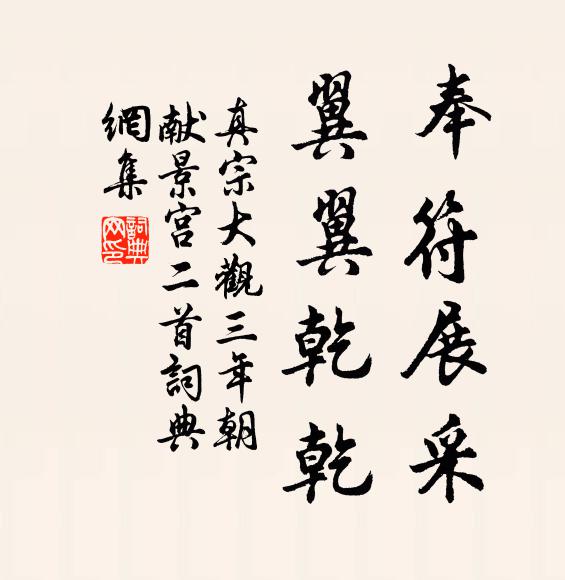 奉符展采
翼翼乾乾
真宗大觀三年朝
献景宫二首詞典
網集
詞典
网印